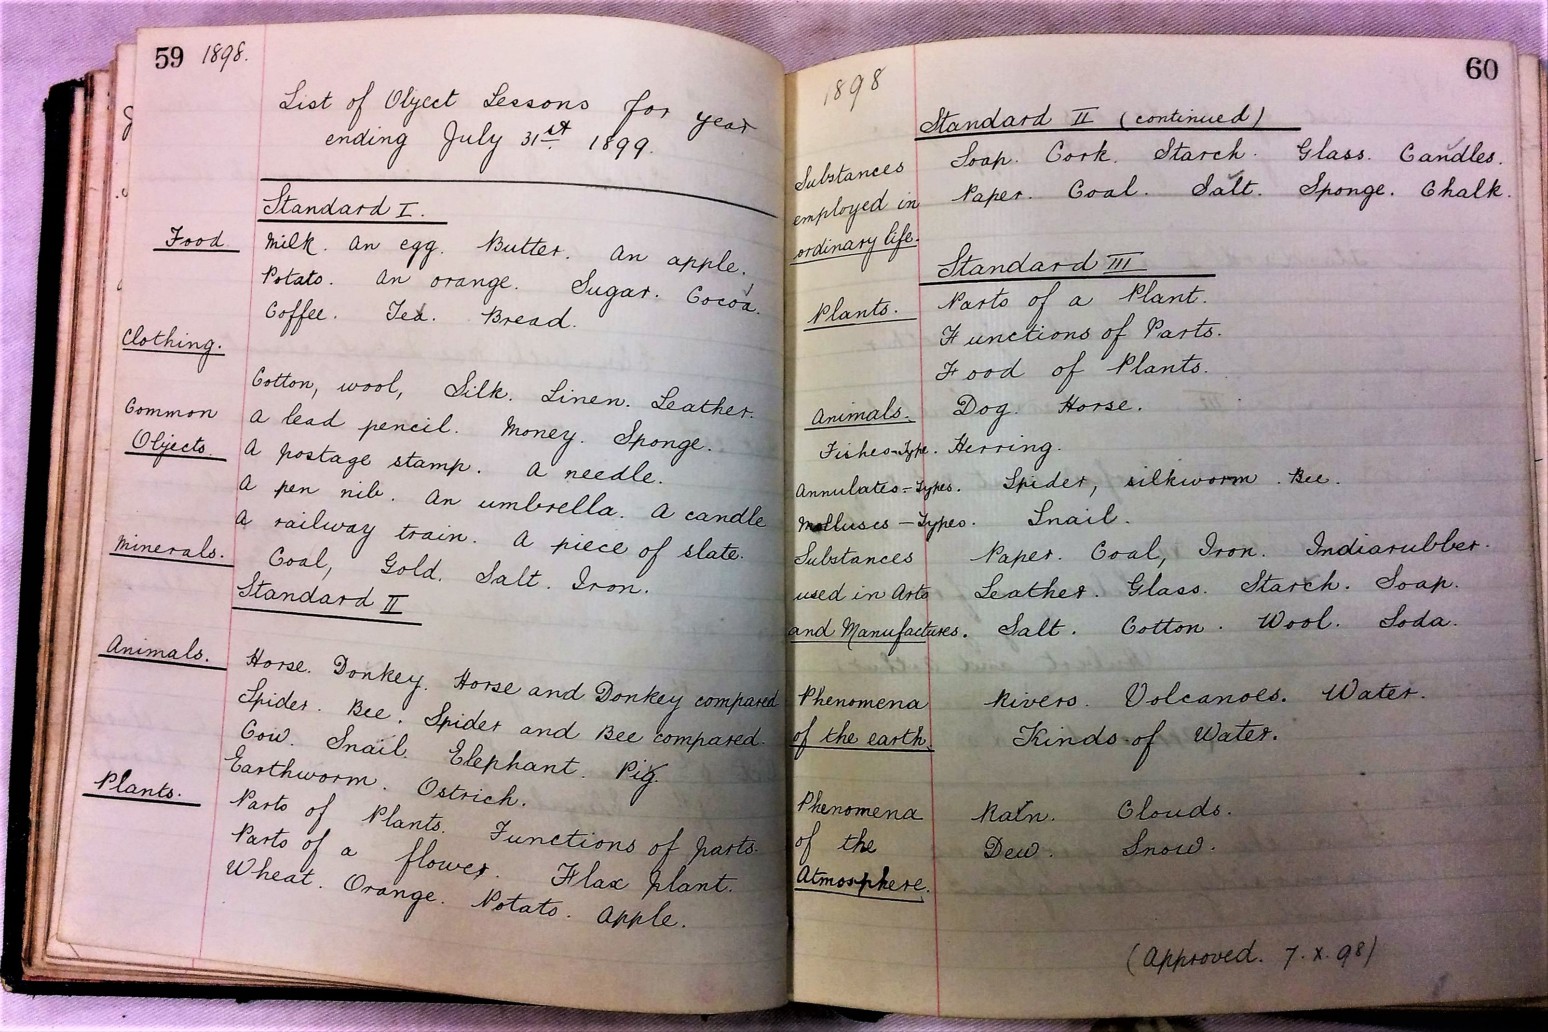 59 1898.
List of Object Lessons for year
ending July 31st 1899.
Standard I.
Food Milk. An egg. Butter. An apple.
Potato. An orange. Sugar. Cocoa.
Coffee. Tea. Bread.
Clothing.
Cotton, wool, Silk. Linen. Leather.
Common A lead pencil. Money. Sponge.
Objects. A postage stamp. A needle.
A pen nib. An umbrella. A candle
A railway train. A piece of slate.
Minerals. Coal, Gold. Salt. Iron.
Standard II
Animals. Horse. Donkey. Horse and Donkey compared
Spider. Bee. Spider and Bee compared.
Cow. Snail. Elephant. Pig.
Earthworm. Ostrich.
Plants. Parts of Plants. Functions of parts.
Parts of a flower. Flax plant.
Wheat. Orange. Potato. Apple.
1898 60
Standard II (continued)
Substances Soap. Cork. Starch. Glass. Candles.
employed in Paper. Coal. Salt. Sponge. Chalk.
ordinary life.
Standard III
Plants. Parts of a Plant.
Functions of Parts.
Food of Plants.
Animals. Dog. Horse.
Fishes=Type. Herring.
Annulates=Types. Spider, silkworm. Bee.
Molluscs — Types. Snail.
Substances Paper. Coal, Iron. Indiarubber.
used in Arts Leather. Glass. Starch. Soap.
and Manufactures. Salt. Cotton. Wool. Soda.
Phenomena Rivers. Volcanoes. Water.
of the earth. Kinds of Water.
Phenomena Rain. Clouds.
of the Dew. Snow.
Atmosphere.
(Approved. 7.X.98)